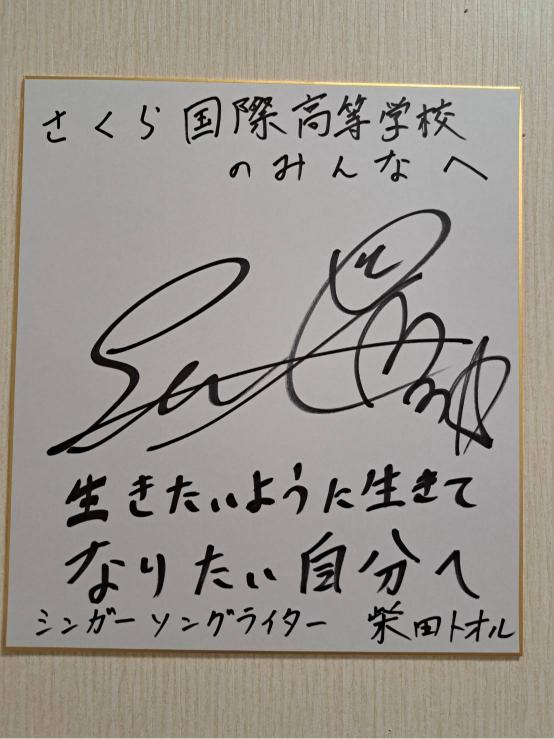 さくら国際高等学校
のみんなへ
生きたいように生きて
なりたい自分へ
シンガーソングライター 栄田トオル